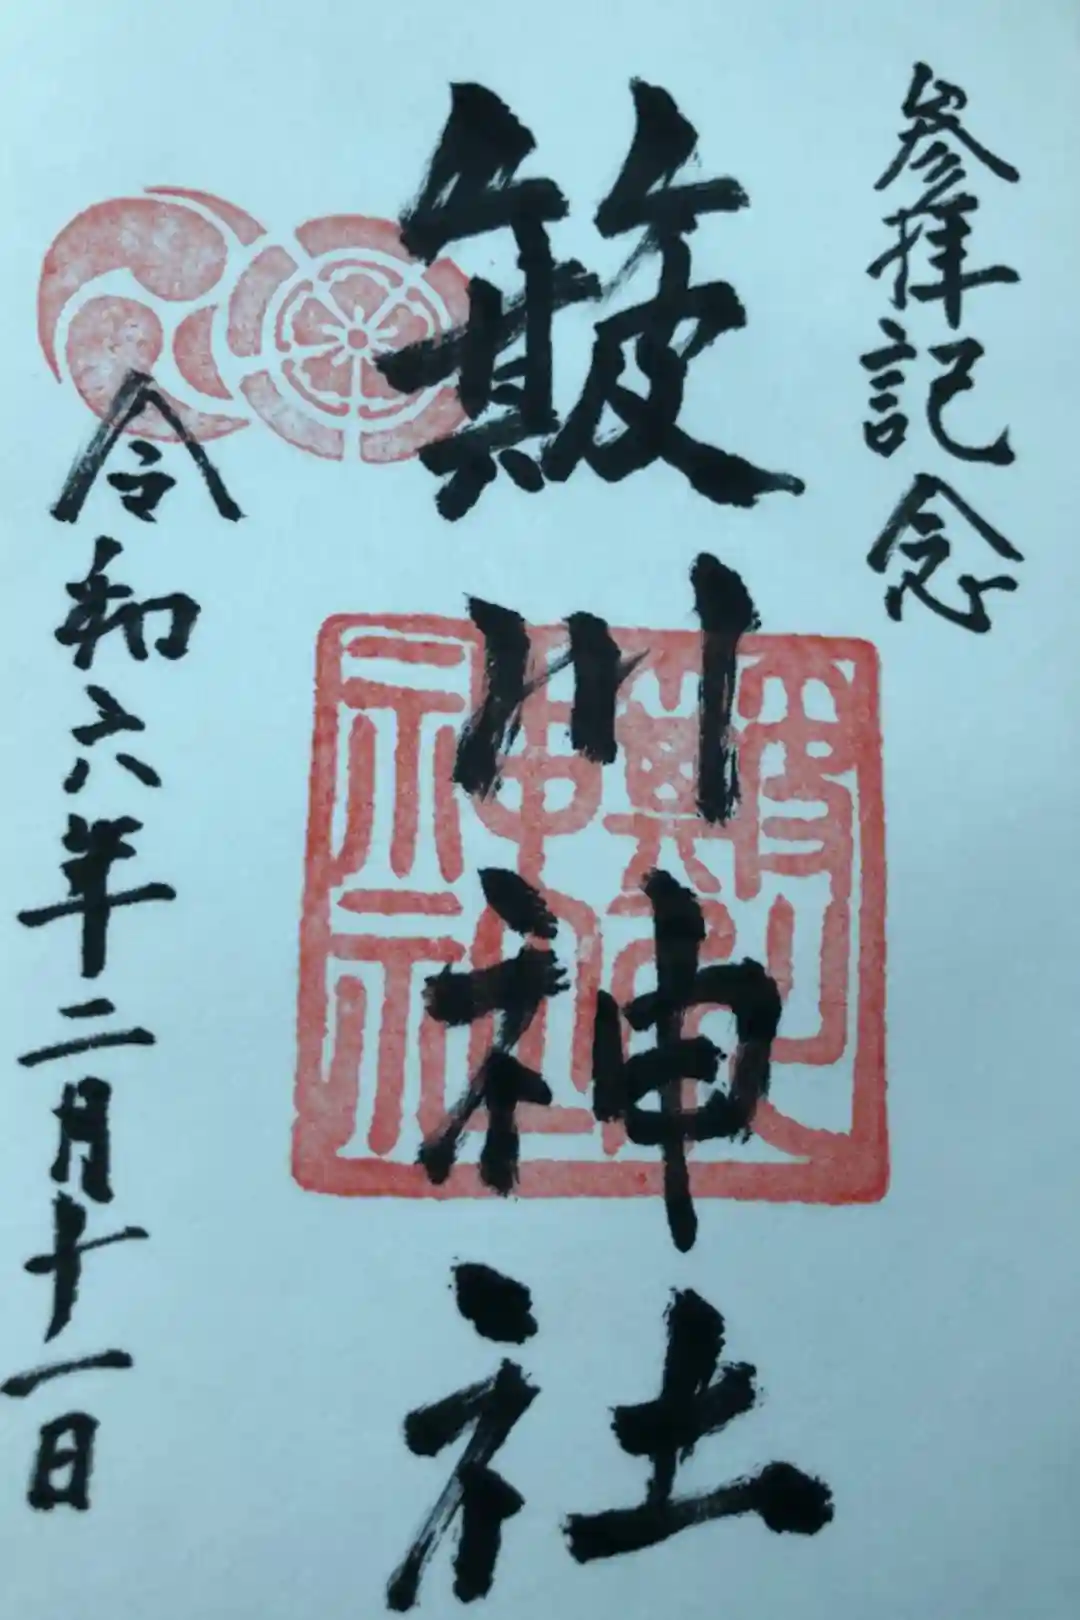 参拝記念
簸川神社
令和六年二月十一日
簸川
神社